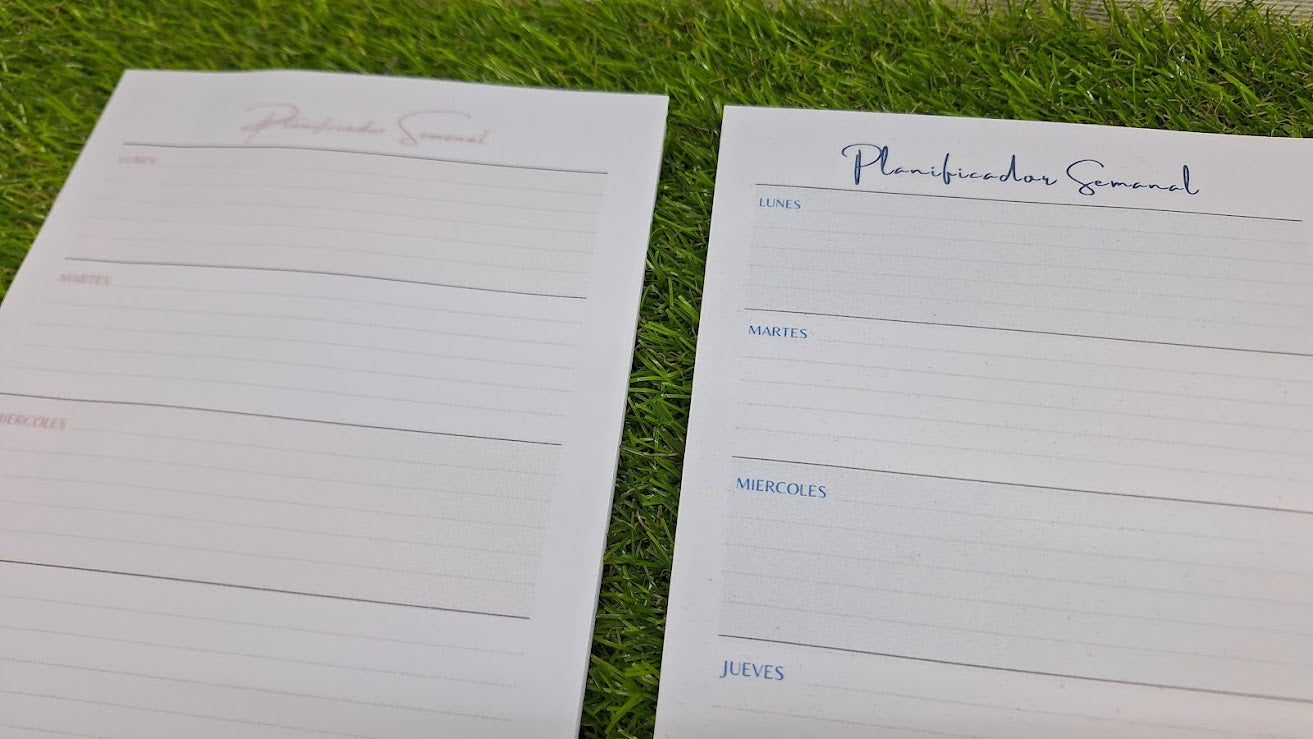 Planificador Semanal
LUNES
MARTES
MIERCOLES
Planificador Semanal
LUNES
MARTES
MIERCOLES
JUEVES